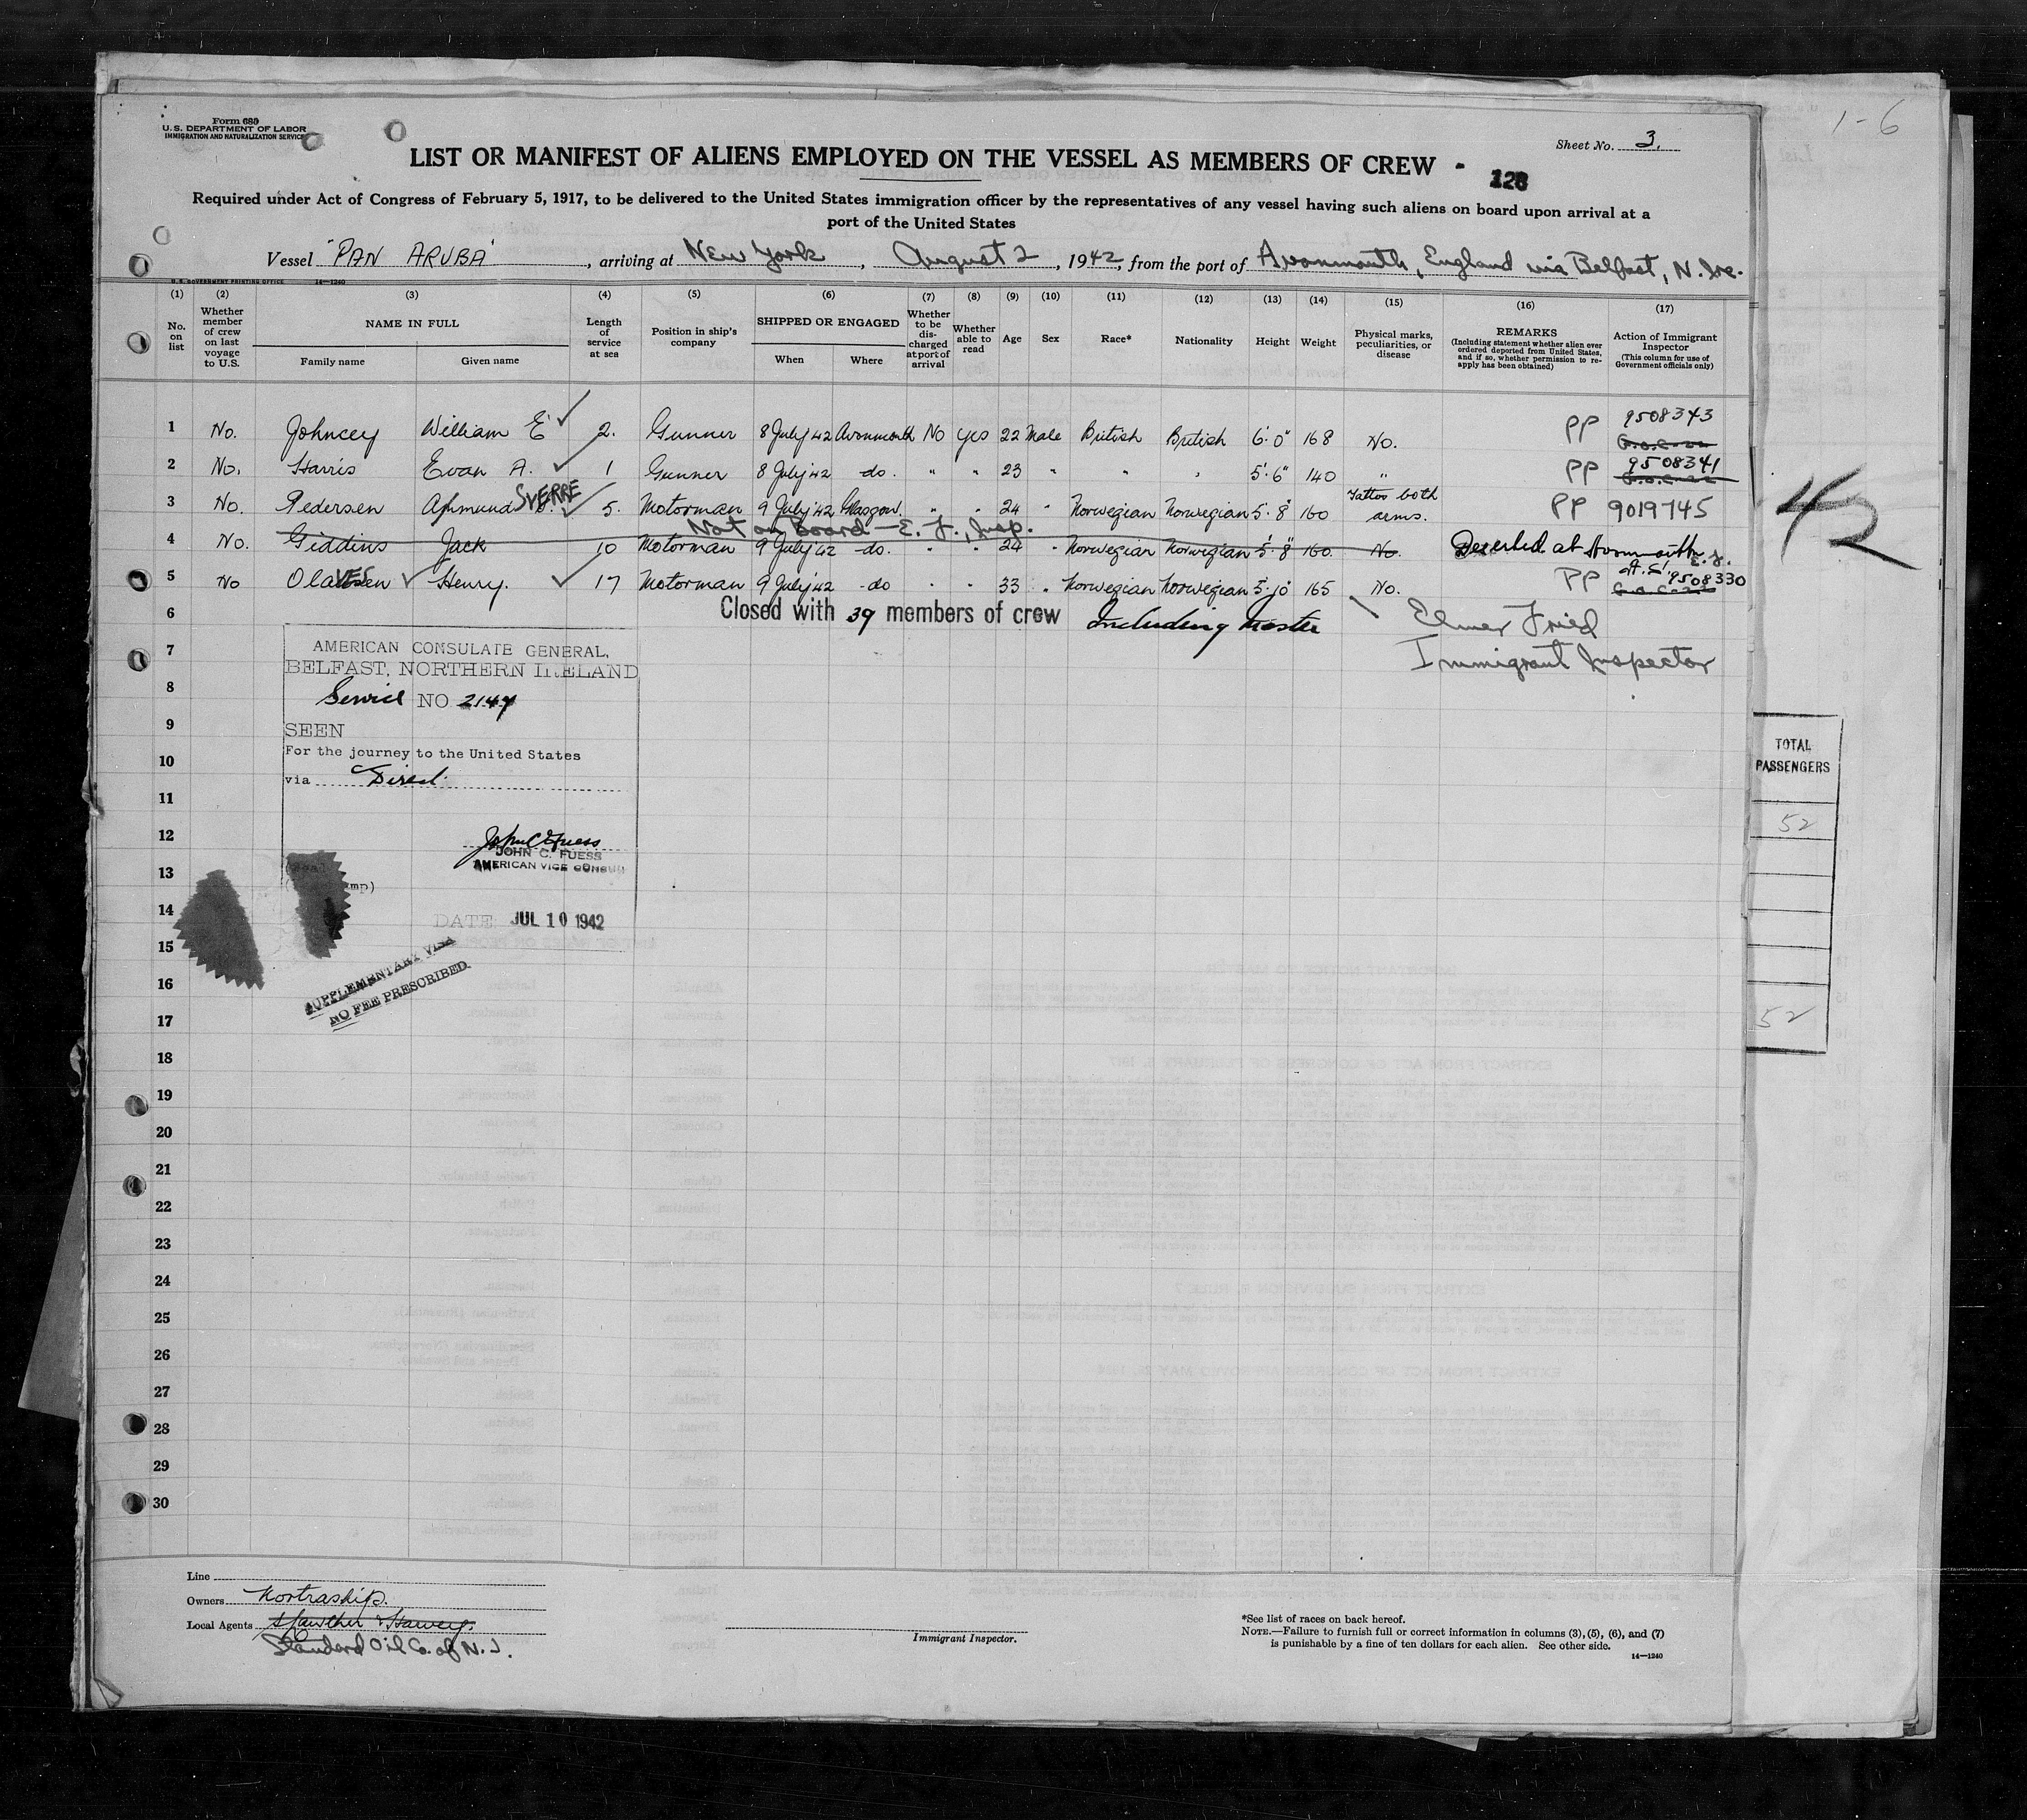 Form 680
U.S. DEPARTMENT OF LABOR
IMMIGRATION AND NATURALIZATION SERVICE
1-6
Sheet No. 3.
LIST OR MANIFEST OF ALIENS EMPLOYED ON THE VESSEL AS MEMBERS OF CREW - 128
Required under Act of Congress of February 5, 1917, to be delivered to the United States immigration officer by the representatives of any vessel having such aliens on board upon arrival at a
port of the United States
Vessel "PAN ARUBA", arriving at New York, August 2, 1942, from the port of Avonmouth, England via Belfast, N. Ire.
U.S. GOVERNMENT PRINTING OFFICE 14—1240
(1) (2) (3) (4) (5) (6) (7) (8) (9) (10) (11) (12) (13) (14) (15) (16) (17)
No. on list
Whether member of crew on last voyage to U.S.
NAME IN FULL
Family name
Given name
Length of service at sea
Position in ship's company
SHIPPED OR ENGAGED
When
Where
Whether to be discharged at port of arrival
Whether able to read
Age
Sex
Race*
Nationality
Height
Weight
Physical marks, peculiarities, or disease
REMARKS
(Including statement whether alien ever ordered deported from United States, and if so, whether permission to reapply has been obtained)
Action of Immigrant Inspector
(This column for use of Government officials only)
1 No. Johncey William E 2. Gunner 8 July 42 Avonmouth No yes 22 Male British British 6'.0" 168 No. PP 9508343
2 No. Harris Evan A. 1 Gunner 8 July 42 do. " " 23 " " " 5'.6" 140 " PP 9508341
SVERRE
3 No. Pedersen 5. Motorman 9 July 42 Glasgow. " " 24 " Norwegian Norwegian 5'.8" 160 Tattoo both arms. PP 9019745
Not on Board — E. F., Insp.
4 No. Giddins Jack 10 Motorman 9 July 42 -do. " " 24 " Norwegian Norwegian 5'.8" 160. No. Deserted at Avonmouth E.F.
5 No Olavesen Henry. 17 Motorman 9 July 42 -do " " 33 " Norwegian Norwegian 5'.10" 165 No. PP 9508330
6 Closed with 39 members of crew Including Master Elmer Fried
7 Immigrant Inspector
8
9
10
11
12
13
14
15
16
17
18
19
20
21
22
23
24
25
26
27
28
29
30
AMERICAN CONSULATE GENERAL,
BELFAST, NORTHERN IRELAND
Service NO 2147
SEEN
For the journey to the United States
via Direct.
JOHN C. FUESS
AMERICAN VICE CONSUL
DATE JUL 10 1942
SUPPLEMENTARY VISA
NO FEE PRESCRIBED
42
TOTAL
PASSENGERS
52
52
Line
Owners Nortraship.
Local Agents
Standard Oil Co. of N.J.
Immigrant Inspector.
*See list of races on back hereof.
NOTE.—Failure to furnish full or correct information in columns (3), (5), (6), and (7)
is punishable by a fine of ten dollars for each alien. See other side.
14—1240